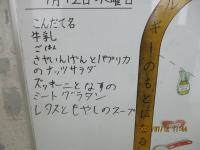 1月12日 水曜日
こんだて名
牛乳
ごはん
さやいんげんとパプリカ
のナッツサラダ
ズッキーニとなすの
ミートグラタン
レタスともやしのスープ
ギーのもとになる